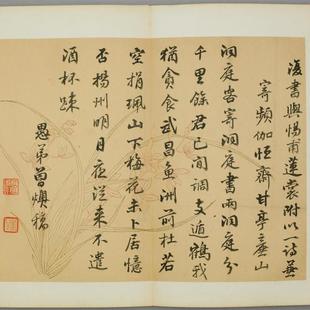 復書與惕甫蓮裳附以一詩兼
寄頻伽恒齋甘亭壺山
洞庭嘗寄洞庭書兩洞庭分
千里餘君已閒調支遁鶴我
猶貪食武昌魚洲前杜若
空捐珮山下梅花未卜居憶
否揚州明月夜從來不遣
酒杯疎
愚弟曾燠稿